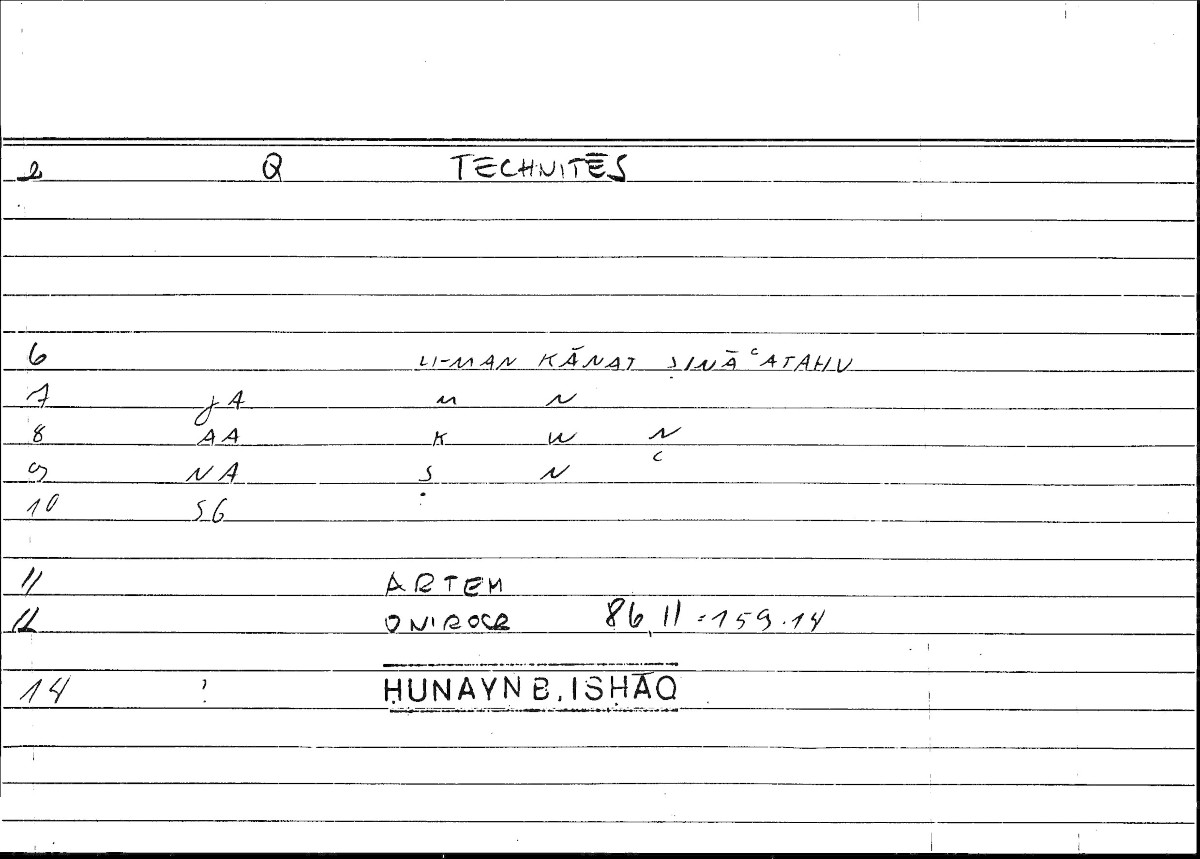 2 Q TECHNITĒS
6 LI-MAN KĀNAT ṢINĀʿATAHU
7 JA M N
8 AA K W N
9 NA Ṣ N ʿ
10 SG
11 ARTEM
12 ONIROCR 86,11 = 159.14
14 ? ḤUNAYN B. ISḤĀQ